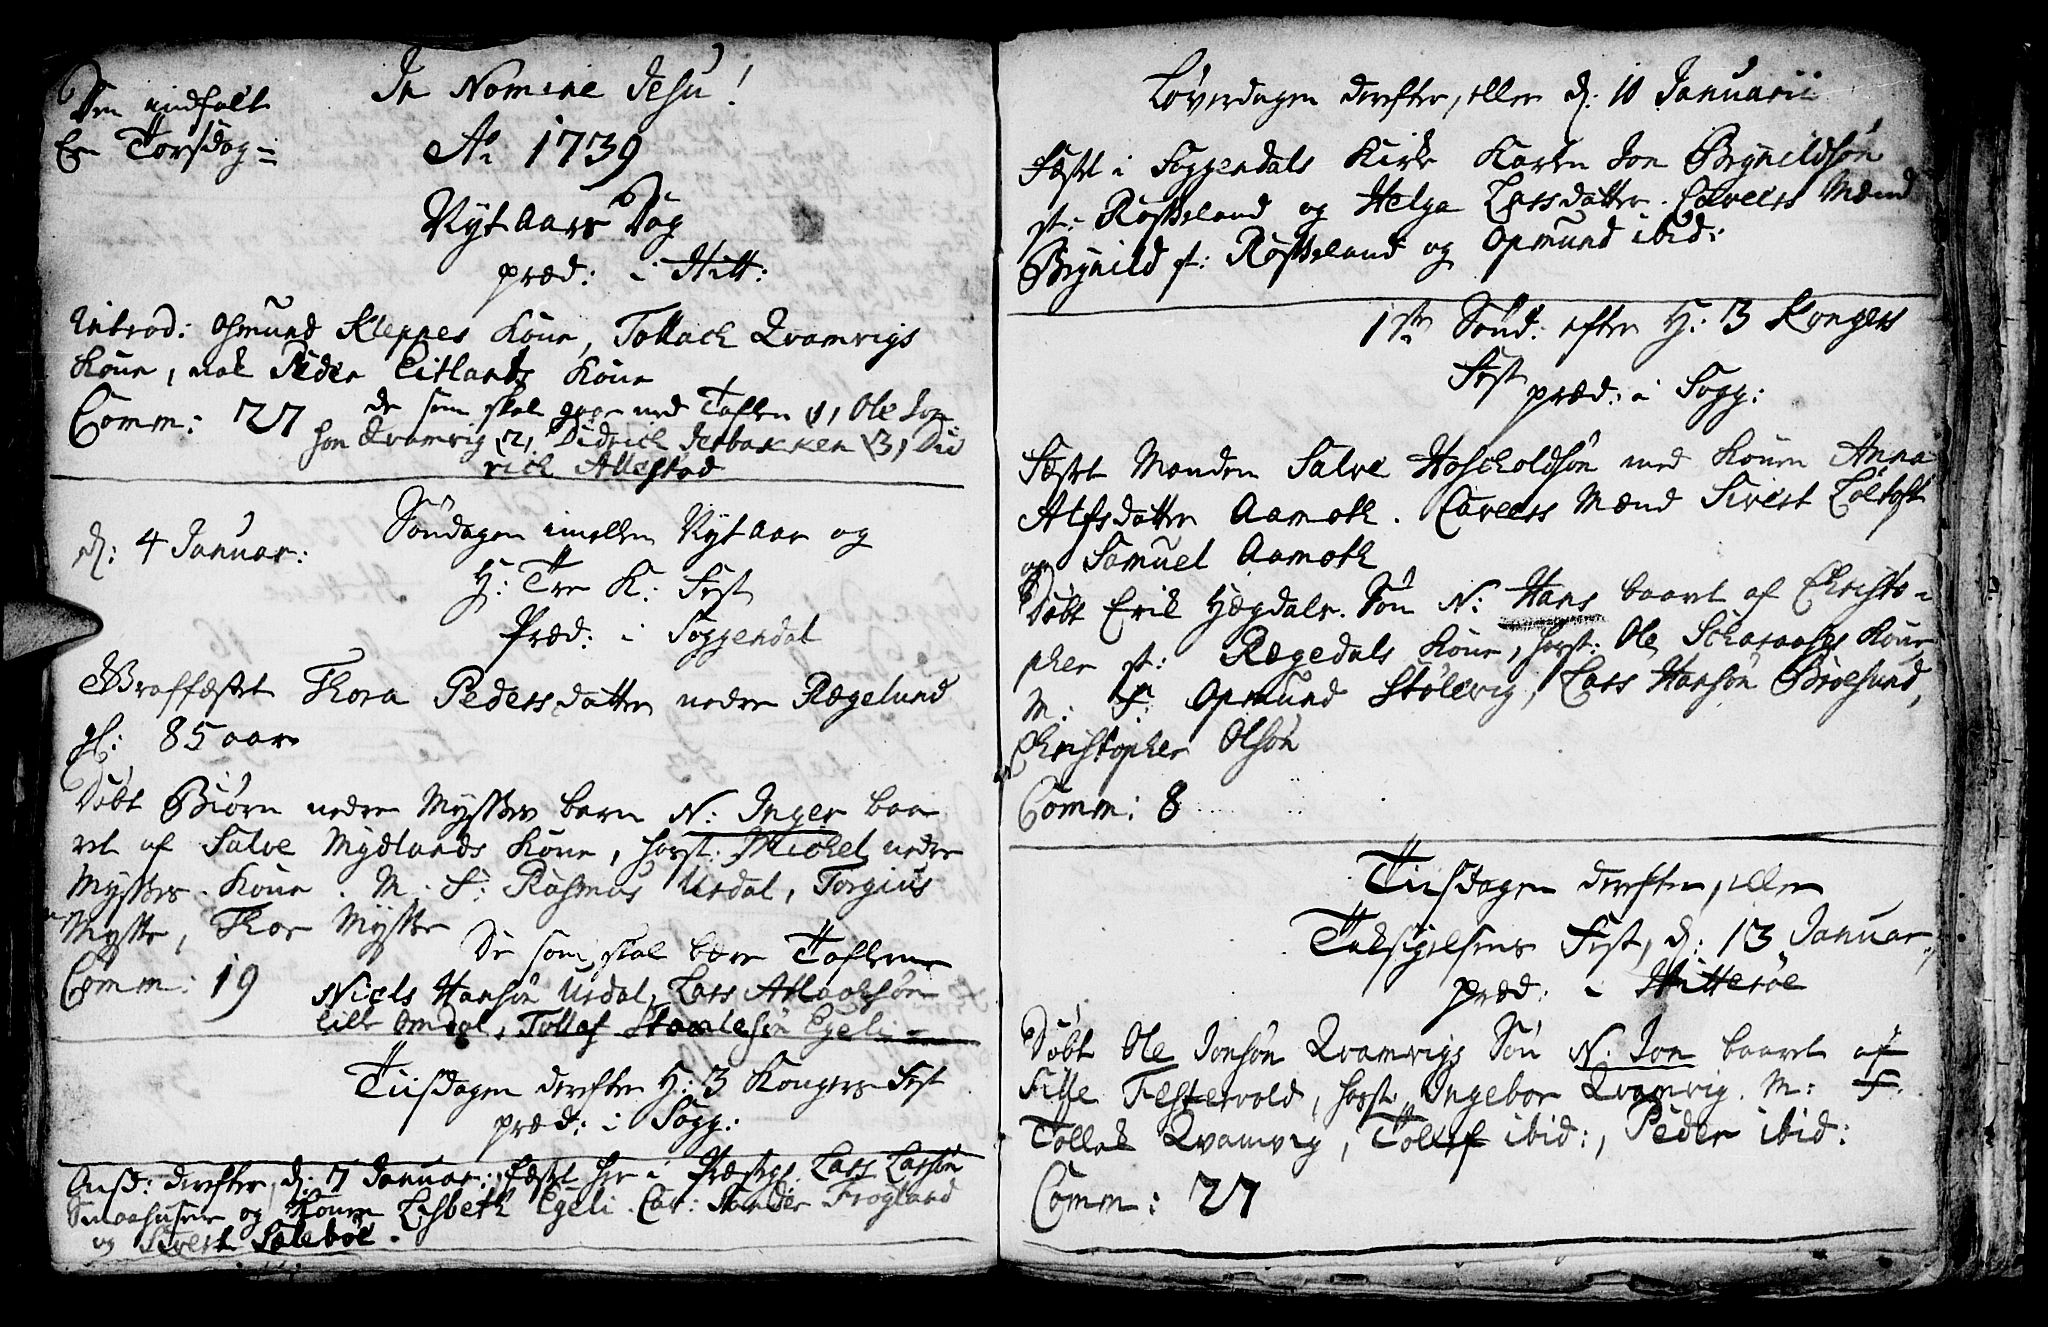 Den indfalt
En Torsdag =
In Nomine Jesu!
Ao 1739
Nyt Aars Dag
præd: i Hitt:
Introd: Osmund Kleppes Kone, Tollach Qvamvigs
Kone, nok Peder Eitlands Kone
Comm: 27 de som skal gaae med Taflen 1, Ole Jon-
son Qvamvig, 2, Didrich Jerbakken 3, Did
rich Allestad
d: 4 Januar:
Søndagen imellem Nyt Aar og
H: Tre K: Fest
Præd: i Soggendal
Graffæstet Thora Peders datter nedre Rægelund
gl: 85 aar
Døbt Biørn nedre Mysses barn N: Inger baa
ret af Salve Mydlands Kone, horst: Michel nedre
Mysses Kone. M. F: Rasmus Urdal, Torgius
Mysse, Thor Mysse
De som skal bære Taflerne
Comm: 19
Niels Hansøn Urdal, Lars Atlachsøn
lille Omdal, Tollef Stamlesøn Egeli =
Tiisdagen derefter H: 3 Kongers Fest
præd: i Sogg:
Onsd: derefter, d: 7 Januar: fæstet her i Præstg: Lars Larsøn
Smaahusene og Konen Lisbeth Egeli. Cav: Sander Frogland
og Sivert Sælebøe.
Løverdagen derefter, eller d: 10 Januarii
Fæstet i Soggendals Kirke Karlen Jon Brynildsøn
st: Røsseland og Helga Larsdatter. Caveers Mænd
Brynild st: Røsseland og Opmund ibid:
1ste Sønd: efter H: 3 Kongers
Fest
præd: i Sogg:
Fæstet Manden Salve Hoscholdsøn med Konen Anna
Alfsdatter Aamoth. Caveers Mænd Sivert Løltoft
og Samuel Aamoth
Døbt Erik Hægdals Søn N: Hans baaret af Christo-
pher st: Rægedals Kone, horst: Ole Kone
M: F: Opmund Stølsvig, Lars Hansøn Broesund,
Christopher Olsøn
Comm: 8
Tiisdagen derefter, eller
Taksigelsens Fest, d: 13 Januar,
præd: i Hitterøe
Døbt Ole Jonsøn Qvamvigs Søn N. Jon baaret af
Sille Festervold, horst. Ingebor Qvamvig. M: F.
Tollak Qvamvig, Tollef ibid:, Peder ibid:
Comm: 27